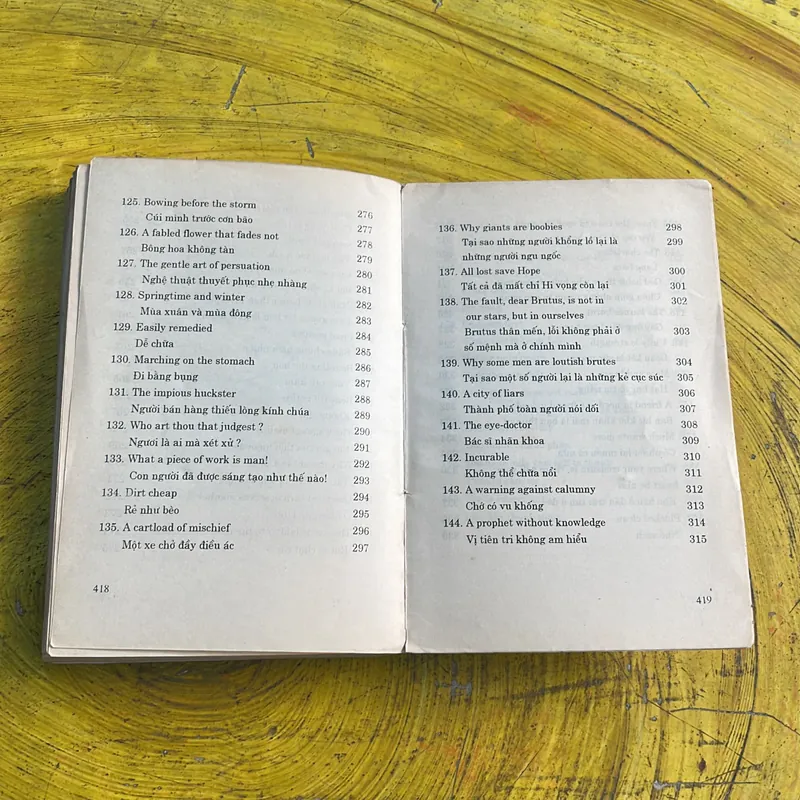 125. Bowing before the storm 276
Cúi mình trước cơn bão 277
126. A fabled flower that fades not 278
Bông hoa không tàn 279
127. The gentle art of persuation 280
Nghệ thuật thuyết phục nhẹ nhàng 281
128. Springtime and winter 282
Mùa xuân và mùa đông 283
129. Easily remedied 284
Dễ chữa 285
130. Marching on the stomach 286
Đi bằng bụng 287
131. The impious huckster 288
Người bán hàng thiếu lòng kính chúa 289
132. Who art thou that judgest ? 290
Ngươi là ai mà xét xử ? 291
133. What a piece of work is man! 292
Con người đã được sáng tạo như thế nào! 293
134. Dirt cheap 294
Rẻ như bèo 295
135. A cartload of mischief 296
Một xe chở đầy điều ác 297
418
136. Why giants are boobies 298
Tại sao những người khổng lồ lại là 299
những người ngu ngốc
137. All lost save Hope 300
Tất cả đã mất chỉ Hi vọng còn lại 301
138. The fault, dear Brutus, is not in 302
our stars, but in ourselves
Brutus thân mến, lỗi không phải ở 303
số mệnh mà ở chính mình
139. Why some men are loutish brutes 304
Tại sao một số người lại là những kẻ cục súc 305
140. A city of liars 306
Thành phố toàn người nói dối 307
141. The eye-doctor 308
Bác sĩ nhãn khoa 309
142. Incurable 310
Không thể chữa nổi 311
143. A warning against calumny 312
Chớ có vu khống 313
144. A prophet without knowledge 314
Vị tiên tri không am hiểu 315
419